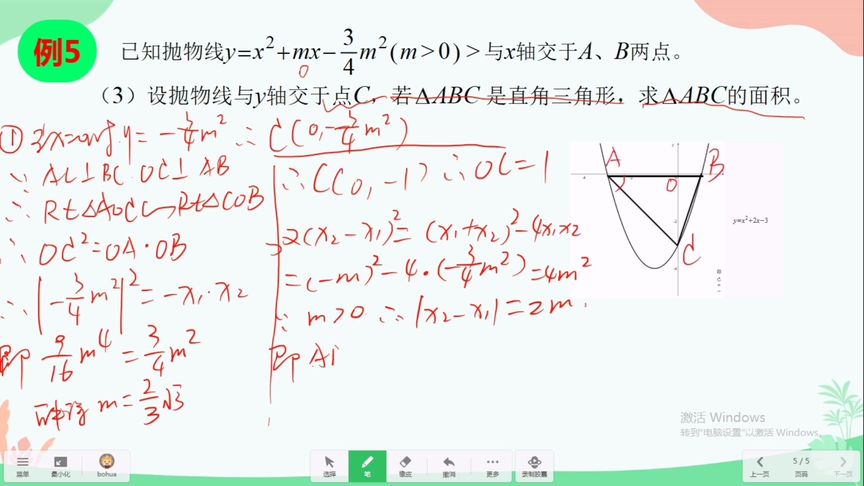 例5
已知抛物线y=x²+mx−3/4m²(m>0)>与x轴交于A、B两点。
0
（3）设抛物线与y轴交于点C，若ΔABC 是直角三角形，求ΔABC的面积。
① 当x=0时 y=−3/4m² ∴ C(0,−3/4m²)
∵ AC⊥BC OC⊥AB
∴ Rt△AOC∽Rt△COB
∴ OC²=OA·OB
∴ |−3/4m²|²=−x₁·x₂
即 9/16m⁴=3/4m²
解得 m=2/3√3
∴ C(0,−1) ∴ OC=1
②(x₂−x₁)²=(x₁+x₂)²−4x₁x₂
=(−m)²−4·(−3/4m²)=4m²
∵ m>0 ∴ |x₂−x₁|=2m.
即 A
A
B
O
C
y=x²+2x−3
激活 Windows
转到"电脑设置"以激活 Windows。
菜单
最小化
bohua
选择
笔
橡皮
撤消
更多
录制胶囊
上一页
5 / 5
页码
下一页